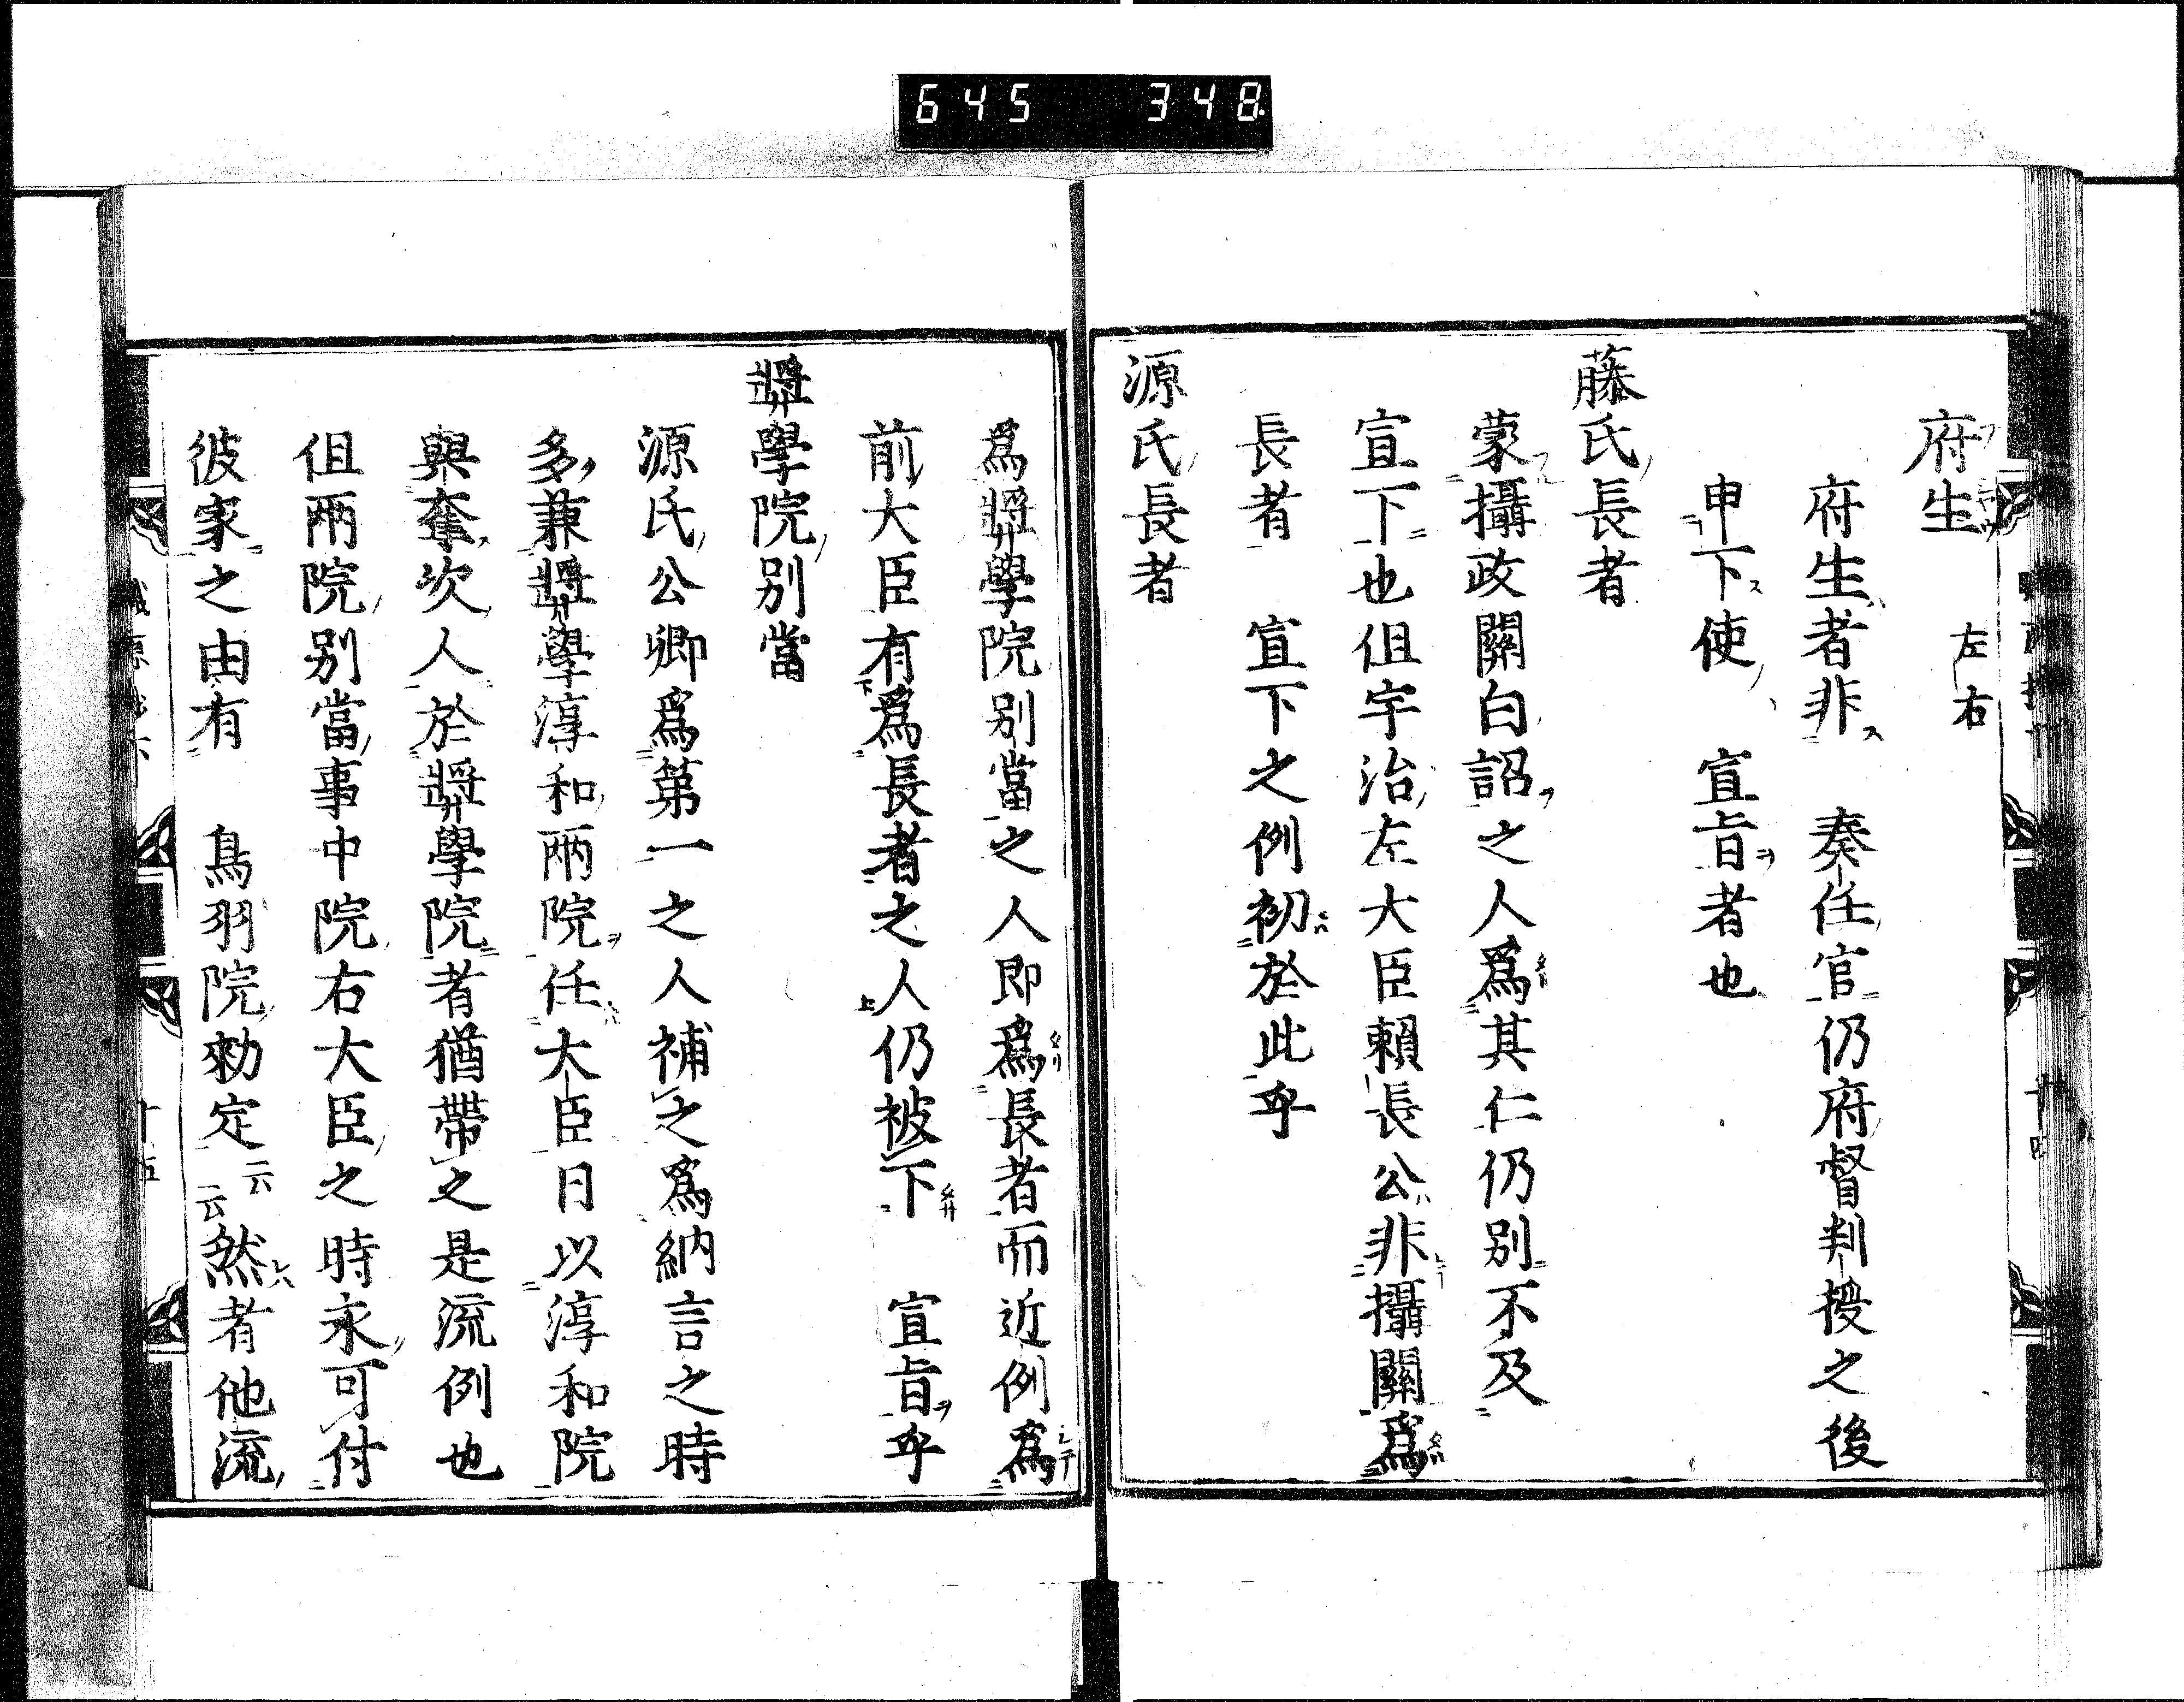 645 348
府生 左右
府生者非 奏任官仍府督判授之後
申下使 宣旨者也
藤氏長者
蒙攝政關白詔之人爲其仁仍別不及
宣下也但宇治左大臣賴長公非攝關爲
長者 宣下之例初於此乎
源氏長者
爲奬學院別當之人即爲長者而近例爲
前大臣有爲長者之人仍被下 宣旨乎
奬學院別當
源氏公卿爲第一之人補之爲納言之時
多兼奬學淳和兩院任大臣日以淳和院
與奪次人於奬學院者猶帶之是流例也
但兩院別當事中院右大臣之時永可付
彼家之由有 鳥羽院勅定云云然者他流